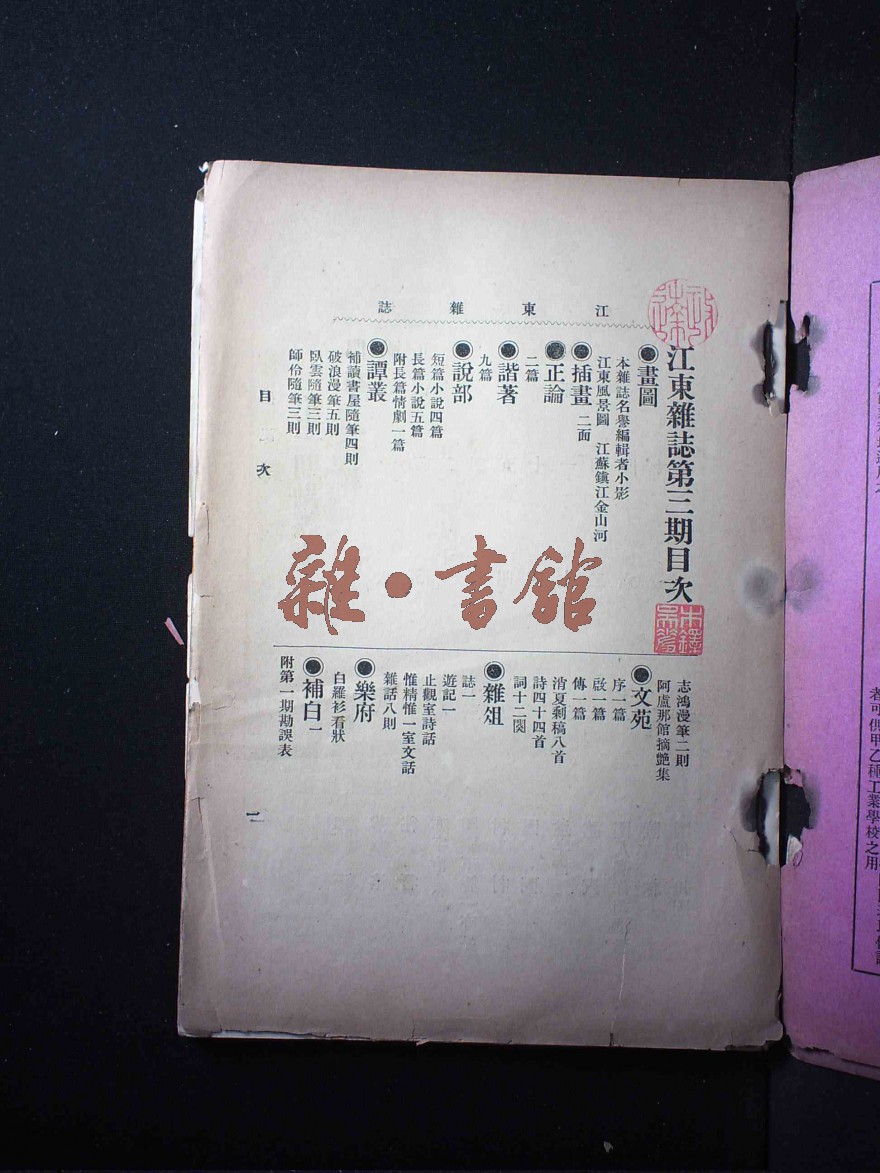 江東雜誌
江東雜誌第三期目次
●畫圖
本雜誌名譽編輯者小影
江東風景圖　江蘇鎮江金山河
●插畫 二面
●正論
二篇
●諧著
九篇
●說部
短篇小說四篇
長篇小說五篇
附長篇情劇一篇
●譚叢
補讀書屋隨筆四則
破浪漫筆五則
臥雲隨筆三則
師伶隨筆三則
志鴻漫筆二則
阿盧那館摘艷集
●文苑
序一篇
啟一篇
傳一篇
消夏剩稿八首
詩四十四首
詞十二闋
●雜俎
誌一
遊記一
止觀室詩話
惟精惟一室文話
雜話八則
●樂府
白羅衫看狀
●補白一
附第一期勘誤表
目次
雜·書館
者可供甲乙種工業學校之用